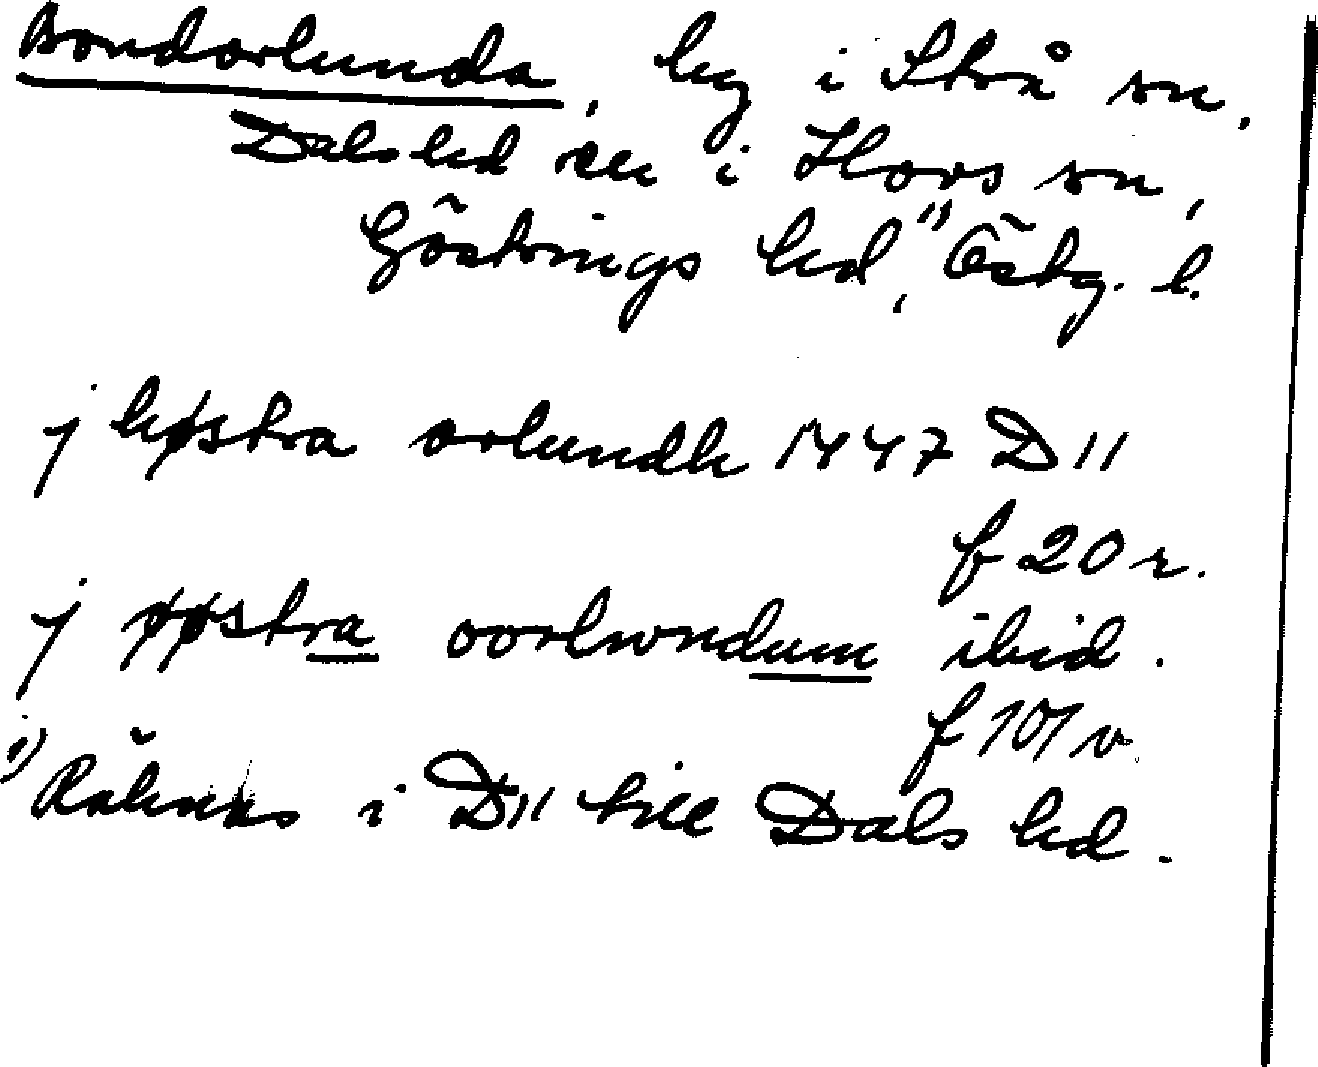 Bondorlunda, by i Strå sn,
Dals hd el i Hovs sn,
Göstrings hd,¹⁾ Östg. l.
j høstra orlundh 1447 D 11
f 20 r.
j øøstra oorlwndum ibid.
f 101 v
¹⁾ Räknas i D 11 till Dals hd.